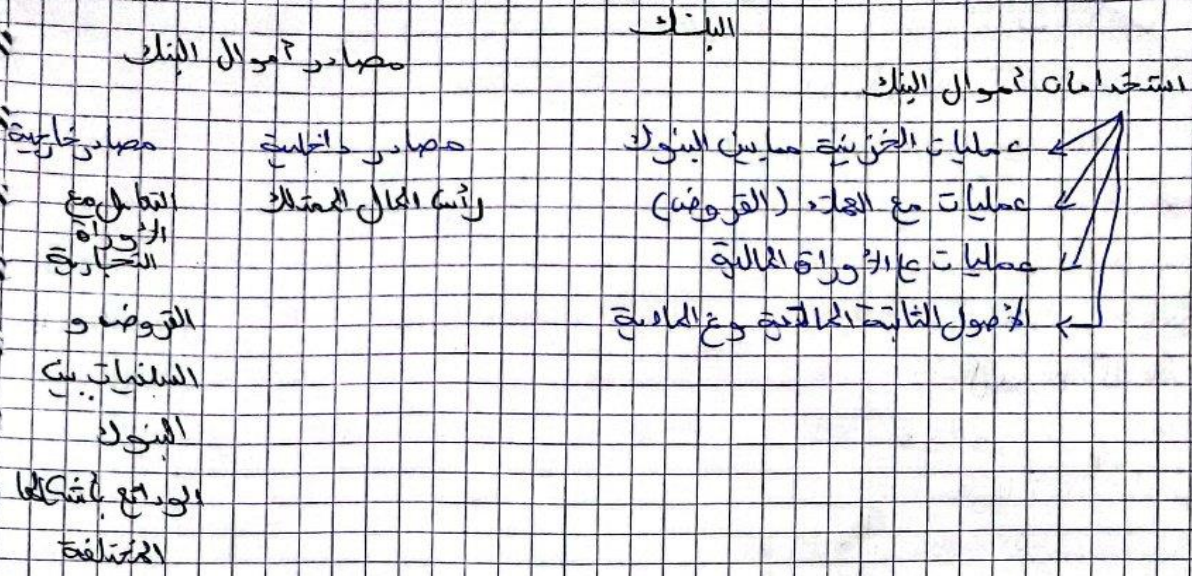 البنك
استخدامات أموال البنك
عمليات الخزينة مابين البنوك
عمليات مع العملاء (القروض)
عمليات ع الأوراق المالية
الأصول الثابتة المادية وغ المادية
مصادر أموال البنك
مصادر داخلية
رأس المال الممتلك
مصادر خارجية
التعامل مع
الأوراق
التجارية
القروض و
السلفيات بين
البنوك
الودائع بأشكالها
المختلفة